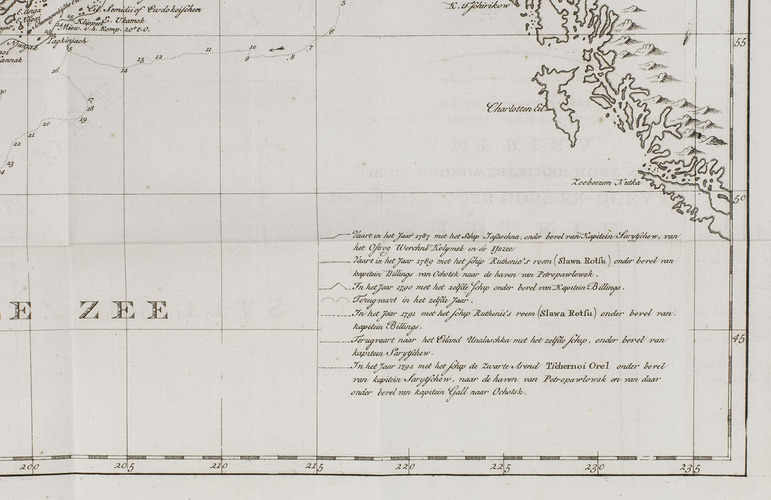 Eil. Semidii of Ewdokeischen
E. Ukamok
Klippen
Tagkinjach
5
6
7
8
9
10
11
12
13
14
15
16
17
18
19
20
21
22
23
K. Tschirikow
55
Charlotten Eil.
Zeeboezem Nutka
50
Vaart in het Jaar 1787 met het Schip Jasaschna, onder bevel van Kapitein Sarytschew, van
het Ostrog Werchné Kolymsk in de IJszee
Vaart in het Jaar 1789 met het schip Ruthenie's roem (Slawa Rotsu) onder bevel van
kapitein Billings van Ochotsk naar de haven van Petropawlowsk.
In het Jaar 1790 met het zelfde schip onder bevel van Kapitein Billings.
Terugvaart in het zelfde Jaar.
In het Jaar 1791 met het schip Ruthenie's roem (Slawa Rotsu) onder bevel van
kapitein Billings.
Terugvaart naar het Eiland Unalaschka met het zelfde schip, onder bevel van
kapitein Sarytschew.
In het Jaar 1792 met het schip de Zwarte Arend Tschernoi Orel onder bevel
van kapitein Sarytschew, naar de haven van Petropawlowsk en van daar
onder bevel van kapitein Gall naar Ochotsk.
E ZEE
45
200 205 210 215 220 225 230 235